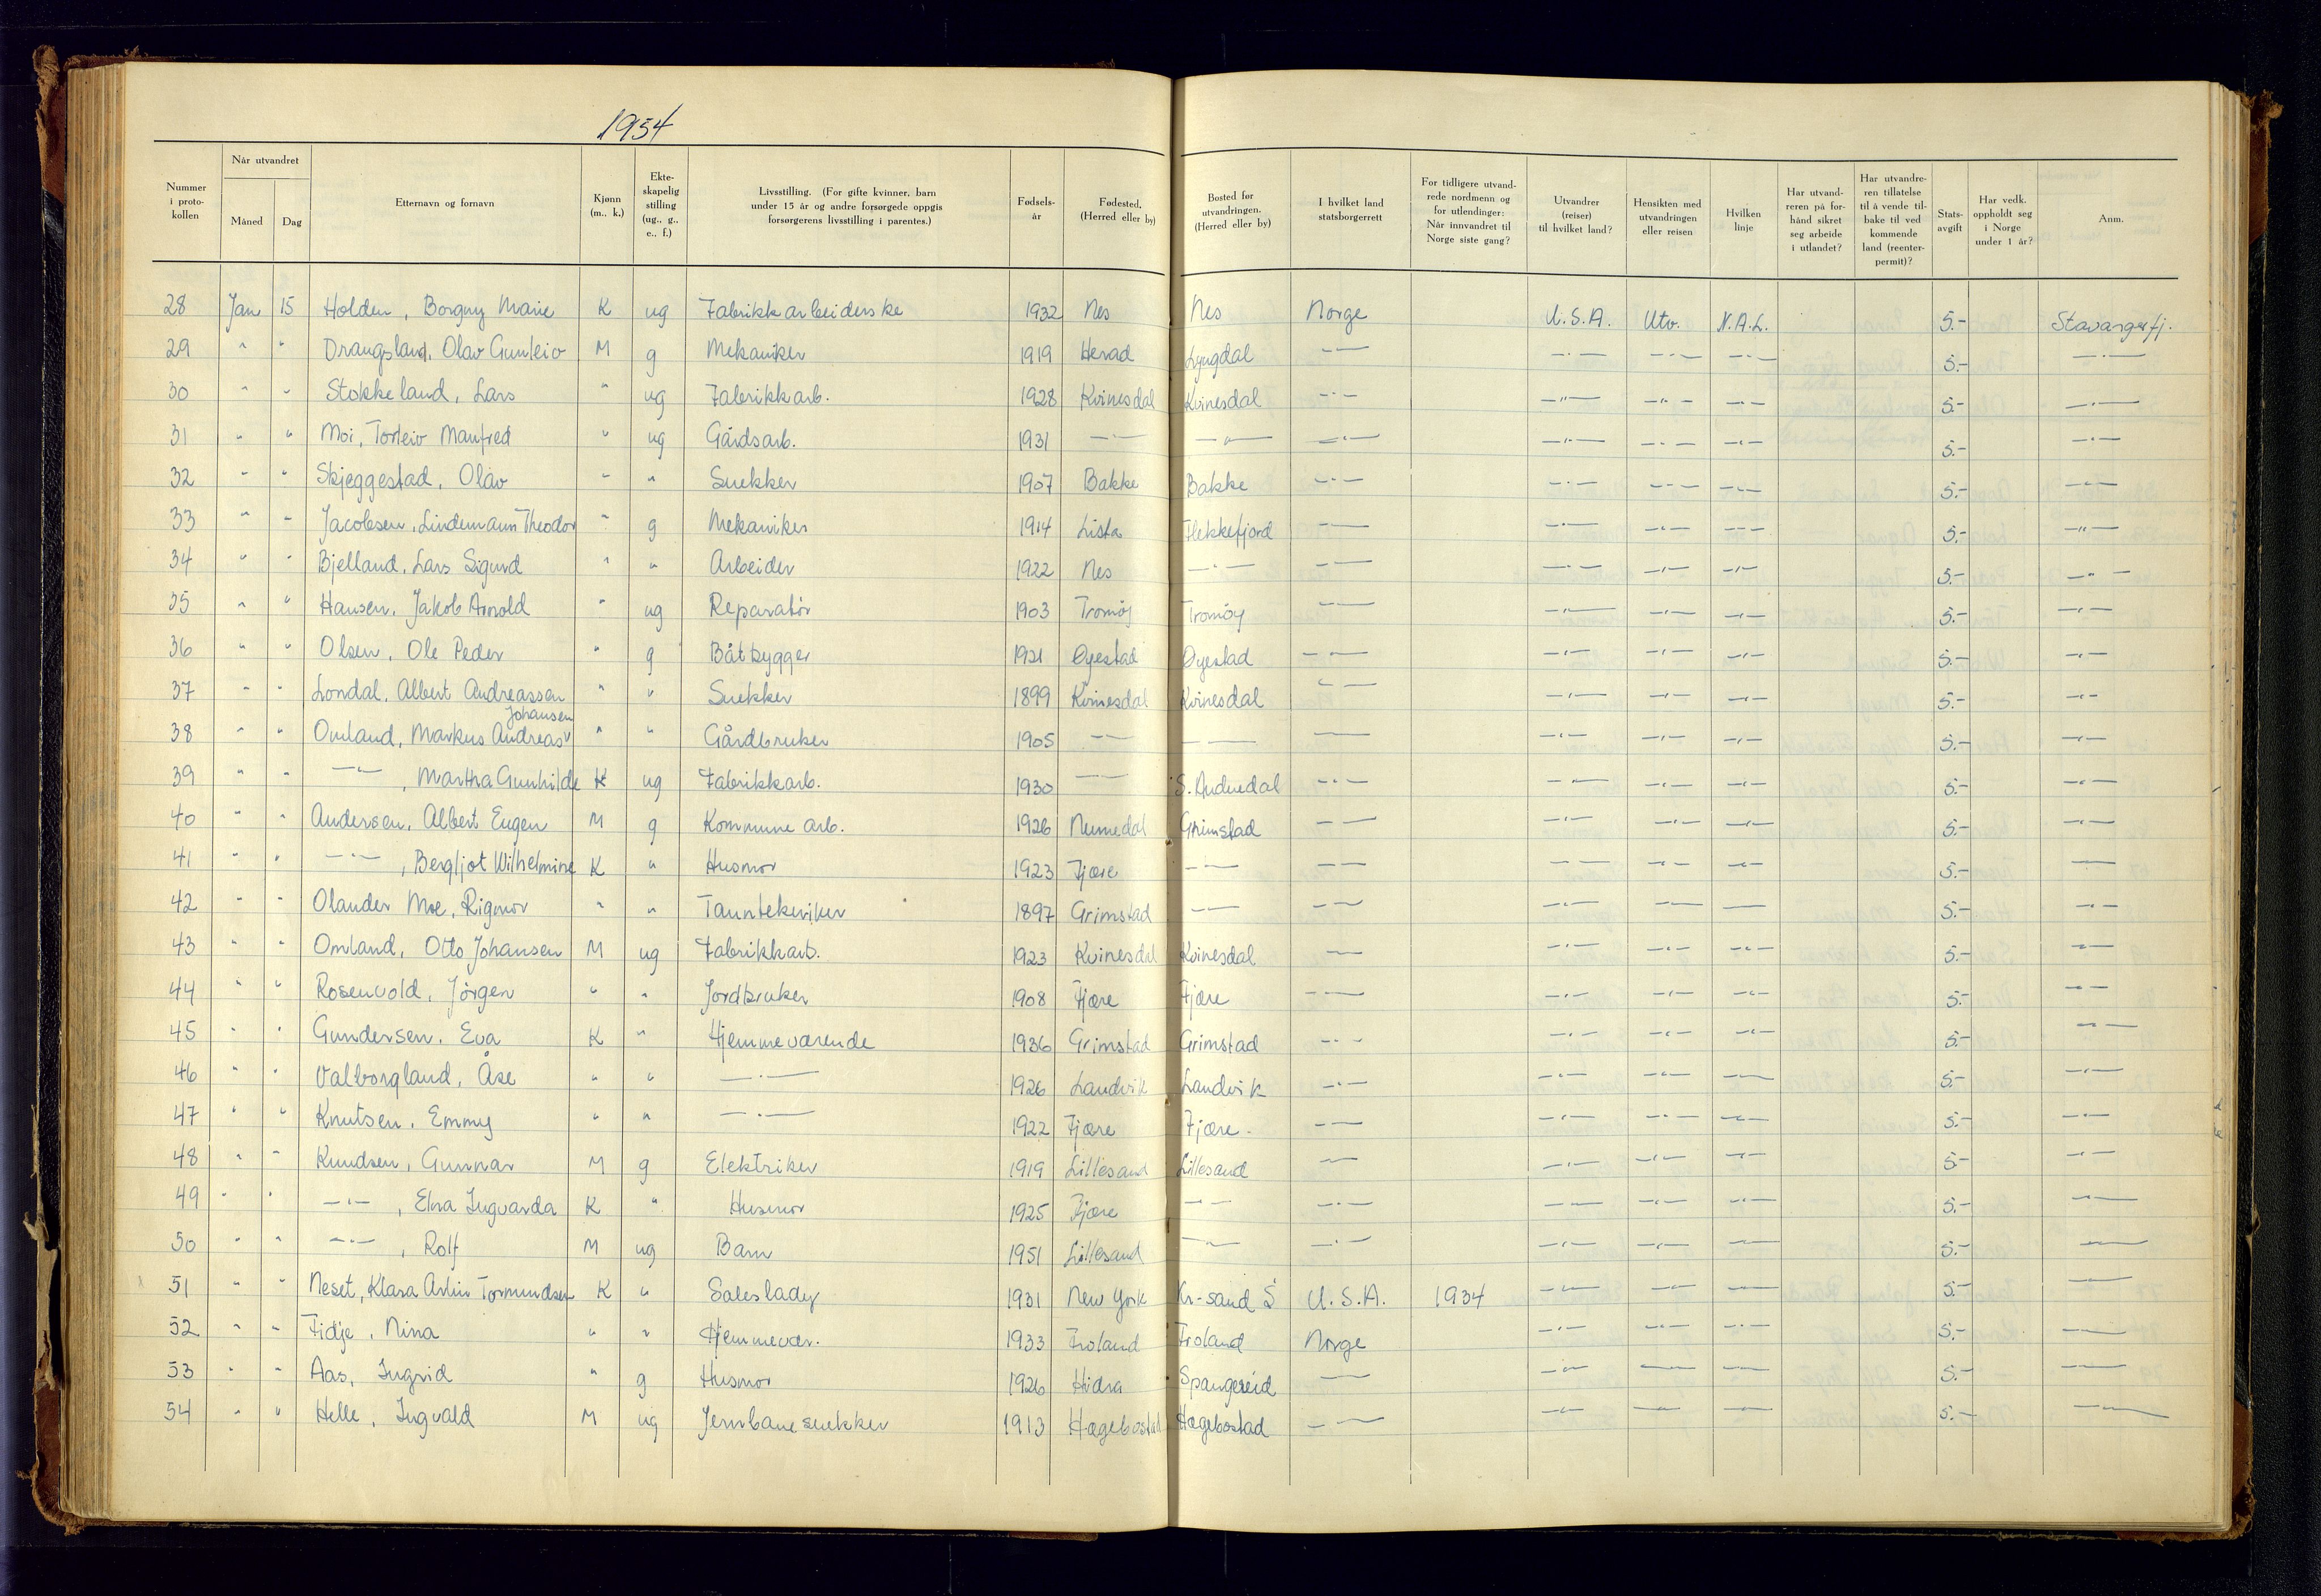 1954
Nummer i proto- kollen | Når utvandret | Måned | Dag | Etternavn og fornavn | Kjønn (m., k.) | Ekte- skapelig stilling (ug., g., e., f.) | Livsstilling. (For gifte kvinner, barn under 15 år og andre forsørgede oppgis forsørgerens livsstilling i parentes.) | Fødsels- år | Fødested. (Herred eller by) | Bosted før utvandringen. (Herred eller by) | I hvilket land statsborgerrett | For tidligere utvand- rede nordmenn og for utlendinger: Når innvandret til Norge siste gang? | Utvandrer (reiser) til hvilket land? | Hensikten med utvandringen eller reisen | Hvilken linje | Har utvand- reren på for- hånd sikret seg arbeide i utlandet? | Har utvandre- ren tillatelse til å vende til- bake til ved kommende land (reenter- permit)? | Stats- avgift | Har vedk. oppholdt seg i Norge under 1 år? | Anm.
28 Jan 15 Holden, Borgny Marie K ug Fabrikkarbeiderske 1932 Nes Nes Norge U.S.A. Utv. N.A.L. 5.- Stavangerfj.
29 " " Drangsland, Olav Gunleiv M g Mekaniker 1919 Herad Lyngdal —"— —"— —"— —"— 5.- —"—
30 " " Stokkeland, Lars " ug Fabrikkarb. 1928 Kvinesdal Kvinesdal —"— —"— —"— —"— 5.- —"—
31 " " Moi, Torleiv Manfred " ug Gårdsarb. 1931 —"— —"— —"— —"— —"— —"— 5.- —"—
32 " " Skjeggestad, Olav " " Snekker 1907 Bakke Bakke —"— —"— —"— —"— 5.- —"—
33 " " Jacobsen, Lindemann Theodor " g Mekaniker 1914 Lista Flekkefjord —"— —"— —"— —"— 5.- —"—
34 " " Bjelland, Lars Sigurd " " Arbeider 1922 Nes —"— —"— —"— —"— —"— 5.- —"—
35 " " Hansen, Jakob Arnold " ug Reparatör 1903 Tromöy Tromöy —"— —"— —"— —"— 5.- —"—
36 " " Olsen, Ole Peder " g Båtbygger 1921 Øyestad Øyestad —"— —"— —"— —"— 5.- —"—
37 " " Londal, Albert Andreassen " " Snekker 1899 Kvinesdal Kvinesdal —"— —"— —"— —"— 5.- —"—
Johansen
38 " " Omland, Markus Andreas " " Gårdbruker 1905 —"— —"— —"— —"— —"— —"— 5.- —"—
39 " " —"—, Martha Gunhilde K ug Fabrikkarb. 1930 —"— S. Audnedal —"— —"— —"— —"— 5.- —"—
40 " " Andersen, Albert Eugen M g Kommune arb. 1926 Numedal Grimstad —"— —"— —"— —"— 5.- —"—
41 " " —"—, Bergljot Wilhelmine K " Husmor 1923 Fjære —"— —"— —"— —"— —"— 5.- —"—
42 " " Olander Moe, Rigmor " " Tanntekniker 1897 Grimstad —"— —"— —"— —"— —"— 5.- —"—
43 " " Omland, Otto Johansen M ug Fabrikkarb. 1923 Kvinesdal Kvinesdal —"— —"— —"— —"— 5.- —"—
44 " " Rosenvold, Jörgen " " Jordbruker 1908 Fjære Fjære —"— —"— —"— —"— 5.- —"—
45 " " Gundersen, Eva K " Hjemmeværende 1936 Grimstad Grimstad —"— —"— —"— —"— 5.- —"—
46 " " Valborgland, Åse " " —"— 1926 Landvik Landvik —"— —"— —"— —"— 5.- —"—
47 " " Knutsen, Emmy " " —"— 1922 Fjære Fjære —"— —"— —"— —"— 5.- —"—
48 " " Knudsen, Gunnar M g Elektriker 1919 Lillesand Lillesand —"— —"— —"— —"— 5.- —"—
49 " " —"—, Elna Ingvarda K " Husmor 1925 Fjære —"— —"— —"— —"— —"— 5.- —"—
50 " " —"—, Rolf M ug Barn 1951 Lillesand —"— —"— —"— —"— —"— 5.- —"—
51 " " Neset, Klara Tormundsen K " Saleslady 1931 New York Kr-sand S U.S.A. 1934 —"— —"— —"— 5.- —"—
52 " " Fidje, Nina " " Hjemmevær. 1933 Froland Froland Norge —"— —"— —"— 5.- —"—
53 " " Aas, Ingrid " g Husmor 1926 Hidra Spangereid —"— —"— —"— —"— 5.- —"—
54 " " Helle, Ingvald M ug Jernbanesnekker 1913 Hægebostad Hægebostad —"— —"— —"— —"— 5.- —"—